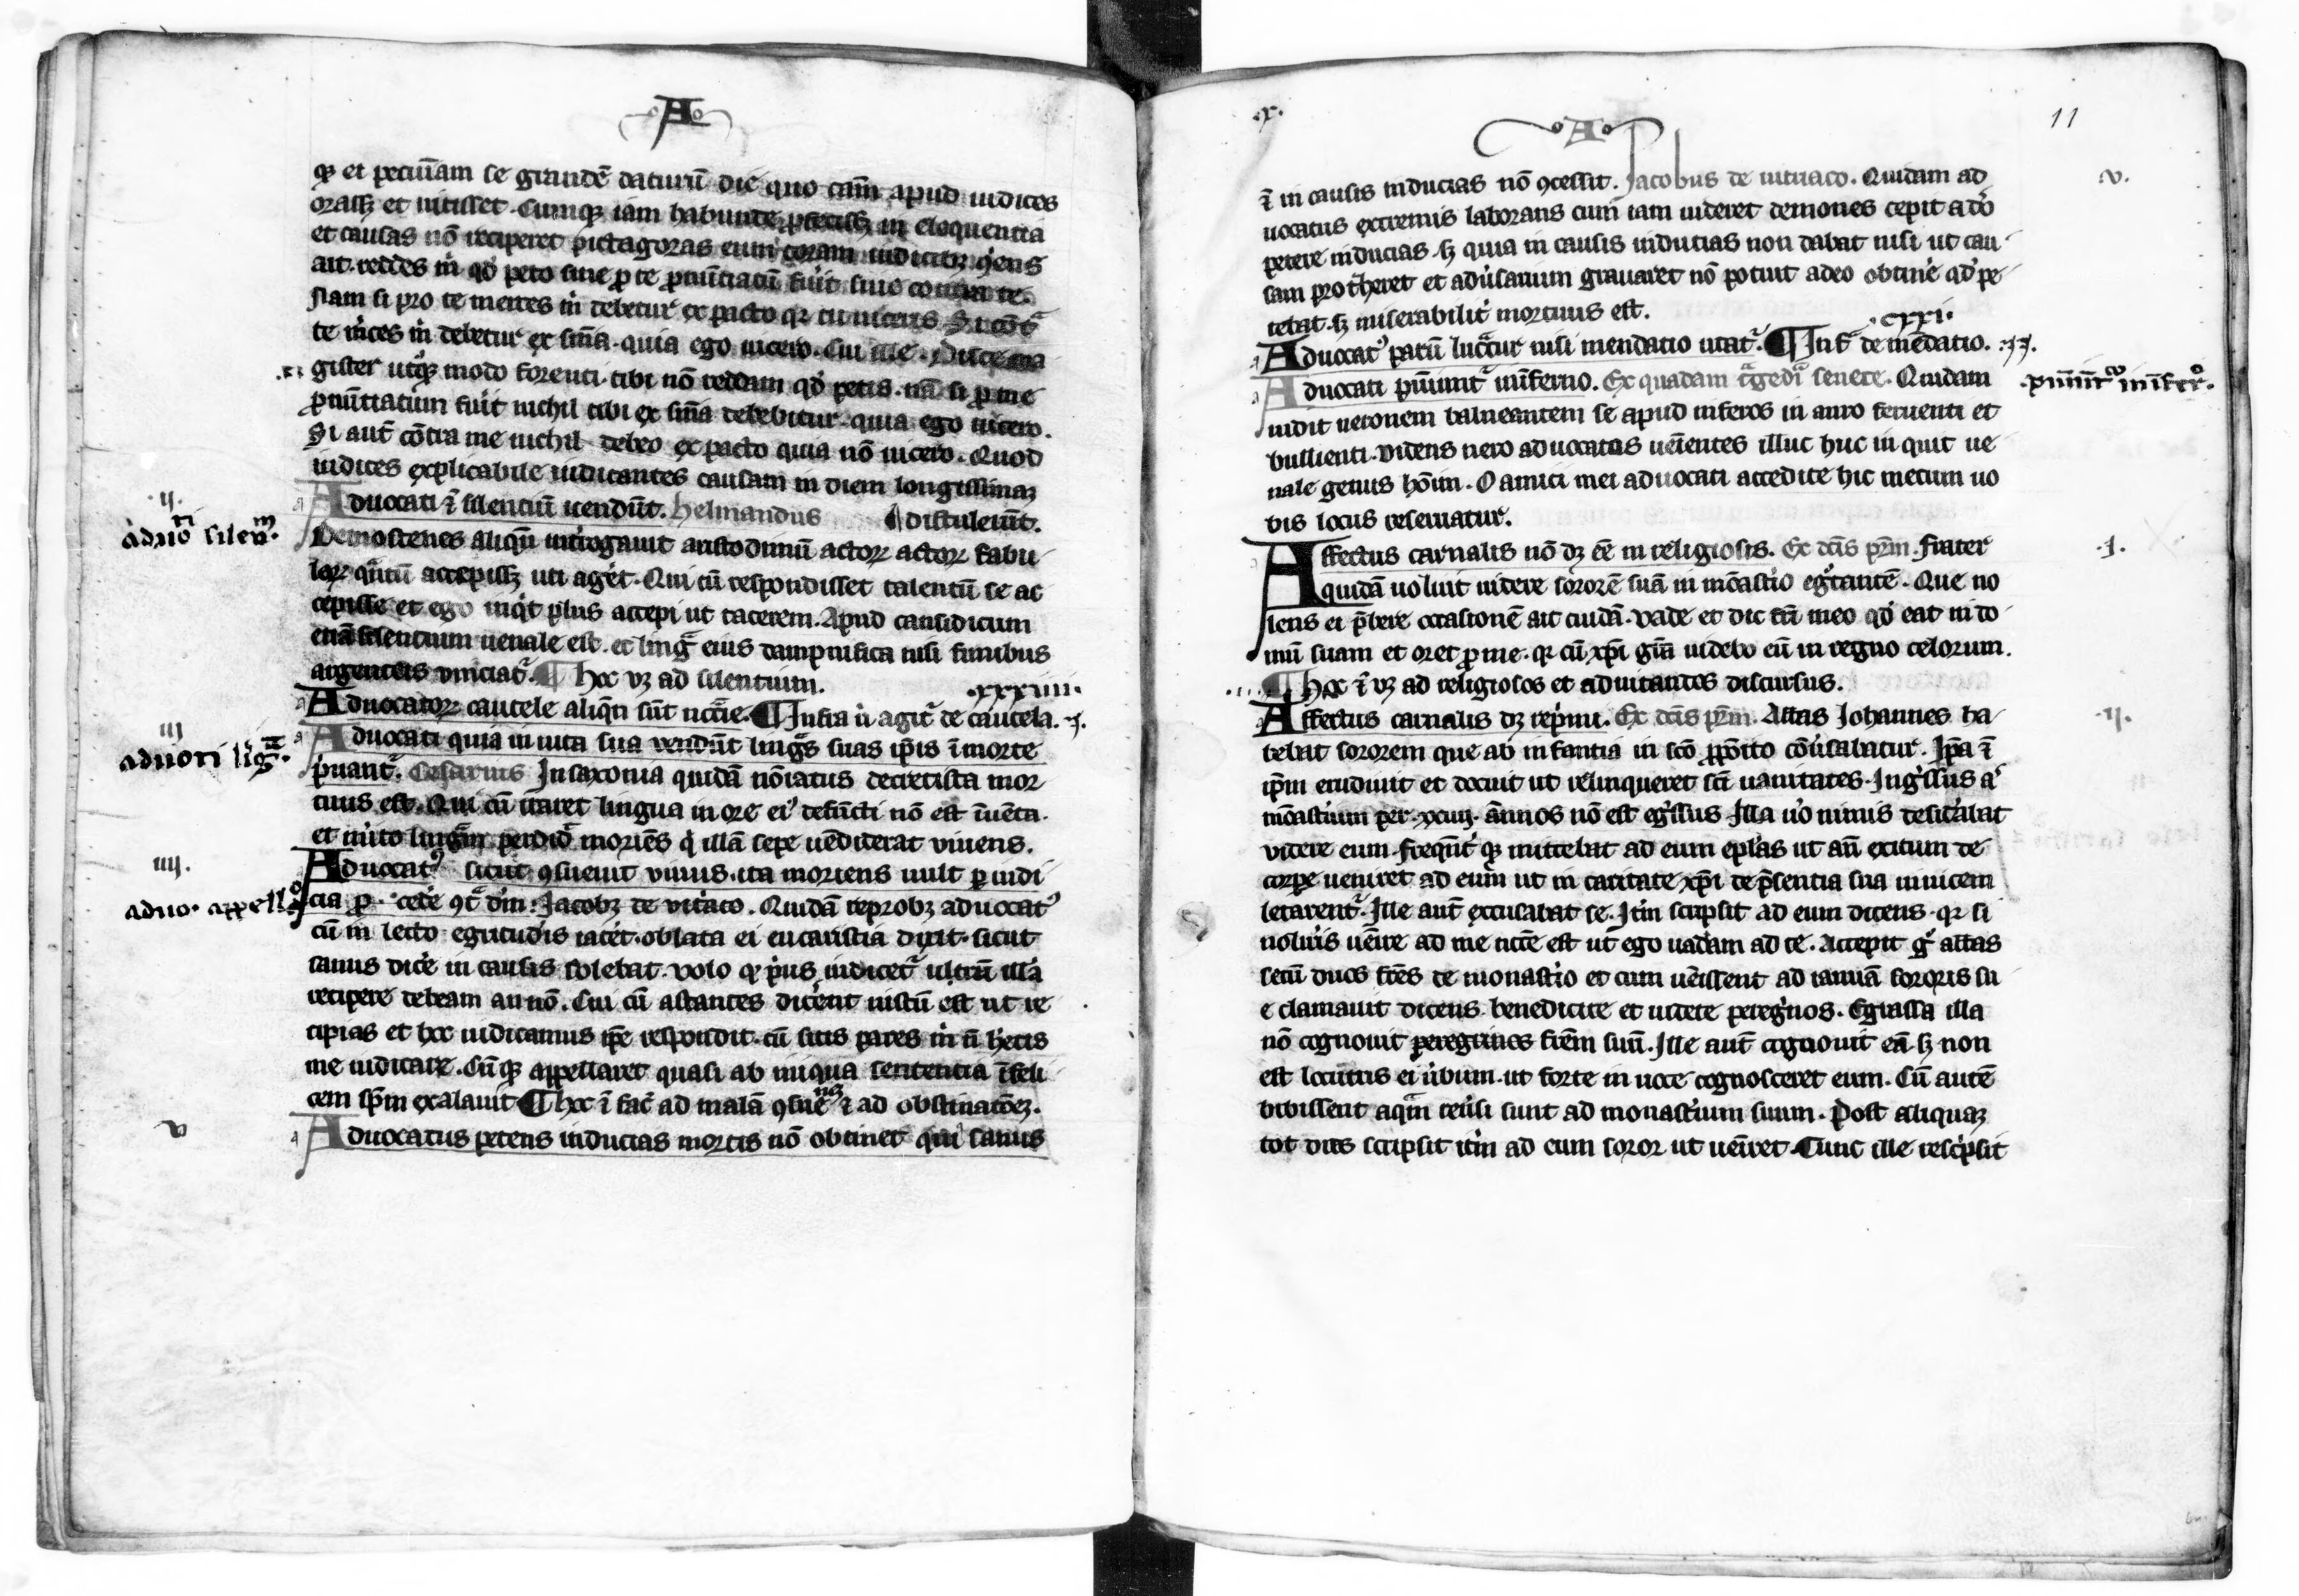 A
q et pecūiam se grandē daturū die quo cām apud iudices
orassꝫ et uicisset. Cumqꝫ iam habunde ꝓfecissꝫ in eloquentia
et causas nō reciperet pictagoras eum coram iudicibꝫ ꝯueniēs
ait. reddes m̄ qd̄ peto siue ꝓ te ꝓnūtiatū fuīt siue contra te.
Nam si pro te metres m̄ debetur ex pacto qꝛ tu uiceris Si cōtͣ
te m̄ces m̄ debetur ex sn̄ia. quia ego uicero. Cui ille. Disce ma
gister utqꝫ modo forenti. tibi nō reddam qd̄ petis. nā si ꝓ me
ꝓnūtiatum fuīt nichil tibi ex sn̄ia debebitur. quia ego uicero.
Si aut̄ cōtra me nichil debeo ex pacto quia nō uicero. Quod
iudices explicabile iudicantes causam in diem longissimaꝫ
.ij. Aduocati ⁊ silenciū uendūt. helinandus ¶ distulerūt.
aduoti silenm. Demostenes aliqn̄ int̄rogauit aristodimū actoꝝ actoꝝ fabu
laꝝ qͣntū accepissꝫ uti aget. Qui cū respondisset talentū se ac
cepisse et ego inqͥt plus accepi ut tacerem. Apud causidicum
etiā silentium uenale est. et lingͣ eius dampnifica nisi funibus
argenteis uinciatͬ. ¶ hoc uꝫ ad silentium. .xxxiiii.
Aduocatoꝝ cautele aliqn̄ sūt nccīe. ¶ Infra u̇ agitͬ de cautela. .j.
iij Aduocati quia in uita sua uendūt lingͣs suas ip̄is ī morte
aduoti ligͣ. priuantͬ. Cesarius In saxonia quidā nōiatus decretista mor
tuus est. Qui cū iaceret lingua in ore eiꝰ defūcti nō est īuēta.
et mito lingͣm perdidͥ moriēs qͥ illā sepe uēdiderat viuens.
iiij. Aduocatꝰ sicut ꝯsueuit viuus. ita moriens uult p iudi
aduo. appello cia ꝓcede ꝯtͣ dm̄. Jacobꝫ de vitͥaco. Quidā reprobꝫ aduocatꝰ
cū in lecto egritudīs iacet. oblata ei eucaristia dixit. sicut
sanus dicē in causis solebat. volo qꝛ pͥus iudicetͬ utrū illā
recipere debeam an nō. Cui cū astantes dicent iustū est ut re
cipias et hoc iudicamus ip̄e respondit. cū sitis pares m̄ n̄ hētis
me iudicare. Cūqꝫ appellaret quasi ab iniqua sententia īfeli
cem sp̄m exalauit ¶ hoc ⁊ fac̄ ad malā ꝯsuet. ⁊ ad obstinacōeꝫ.
v Aduocatus petens inducias mortis nō obtinet qui sanus
.x. A 11
⁊ in causis inducias nō ꝯcessit. Jacobus de uitriaco. Quidam ad v.
uocatus extremis laborans cum iam uideret demones cepit a dō
petere inducias. sꝫ quia in causis inducias non dabat nisi ut cau
sam protheret et adūsarium grauaret nō potuit adeo obtinē qd̄ pe
tebat. sꝫ miserabilit̄ mortuus est. .cxxi.
Aduocatꝰ parū lucͣtur nisi mendatio utatͬ. ¶ Infͣ de mēdatio. .ij.
Aduocati puniunt̄ in inferno. Ex quadam tͣgedia senece. Quidam .puniūtͬ in infero.
uidit neronem balneantem se apud inferos in auro feruenti et
bullienti. videns nero aduocatos ueīentes illuc huc inquit ue
nale genus hōim. O amici mei aduocati accedite hic mecum uo
bis locus reseruatur.
Affectus carnalis nō dꝫ eē in religiosis. Ex dcīs pr̄m. Frater .j.
quidā uoluit uidere sororē suā in mōastīo egͦtantē. Que no
lens ei p̄bere occasionē ait cuidā. vade et dic frī meo qd̄ eat in do
mū suam et oret ꝓ me. qꝛ cū xp̄i grā uidebo eū in regno celorum.
¶ hoc ⁊ uꝫ ad religiosos et ad uitandos discursus.
Affectus carnalis dꝫ repͥmi. Ex dcīs pr̄m. Abbas Johannes ha .ij.
bebat sororem que ab infantia in scō ꝓpōito cōuersabatur. Ip̄a ⁊
ip̄m erudiuit et docuit ut relinqueret scī uanitates. Ingͥssus aͬ
mōastium per .xxiij. annos nō est egͥssus. Illa uo nimis desidabat
videre eum. Freqn̄tͥqꝫ mittebat ad eum eplās ut an̄ exitum de
corpe ueniret ad eum ut in caritate xp̄i de p̄sentia sua inuicem
letarentͬ. Ille aut̄ excusabat se. Itm̄ scripsit ad eum dicens. qꝛ si
uolūis uēire ad me ncc̄e est ut ego uadam ad te. Accepit gͦ abbas
secū duos fr̄es de monastīo et cum ueīssent ad ianuā sororis su
e clamauit dicens. benedicite et uidete peregͥnos. Egressa illa
nō cognouit peregrinos fr̄em suū. Ille aut̄ cognouit eā. sꝫ non
est locutus ei ūbum. ut forte in uoce cognosceret eum. Cū autē
bibissent aqͣm reūsi sunt ad monastīum suum. Post aliquaꝫ
tot dies scripsit itm̄ ad eum soror ut ueīret. Tunc ille rescͥpsit